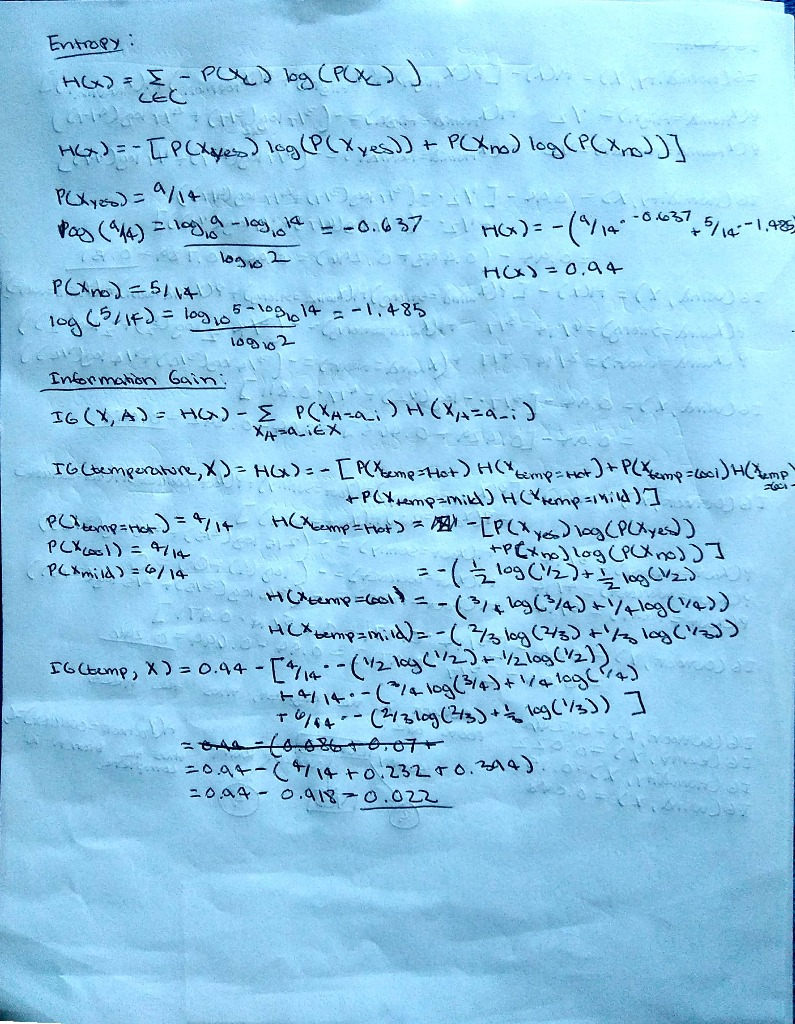 Entropy:
H(x) = Σ - P(Xc) log (P(Xc))
c∈C
H(x) = - [P(Xyes) log(P(Xyes)) + P(Xno) log(P(Xno))]
P(Xyes) = 9/14
log (9/14) = log₁₀9 - log₁₀14 = -0.637
log₁₀2
H(x) = -(9/14 · -0.637 + 5/14 · -1.485)
H(x) = 0.94
P(Xno) = 5/14
log (5/14) = log₁₀5 - log₁₀14 = -1.485
log₁₀2
Information Gain:
IG(X, A) = H(x) - Σ P(XA=a_i) H(XA=a_i)
XA=a_i∈X
IG(temperature, X) = H(x) = - [P(Xtemp=Hot) H(Xtemp=Hot) + P(Xtemp=cool) H(Xtemp=cool)
+ P(Xtemp=mild) H(Xtemp=mild)]
P(Xtemp=Hot) = 4/14 H(Xtemp=Hot) = -[P(Xyes) log(P(Xyes))
P(Xcool) = 4/14 + P(Xno) log(P(Xno))]
P(Xmild) = 6/14 = -(1/2 log(1/2) + 1/2 log(1/2)
H(Xtemp=cool) = -(3/4 log(3/4) + 1/4 log(1/4))
H(Xtemp=mild) = -(2/3 log(2/3) + 1/3 log(1/3))
IG(temp, X) = 0.94 - [4/14 · -(1/2 log(1/2) + 1/2 log(1/2))
+ 4/14 · -(3/4 log(3/4) + 1/4 log(1/4)
+ 6/14 · -(2/3 log(2/3) + 1/3 log(1/3)) ]
= 0.94 - (0.086 + 0.07 +
= 0.94 - (4/14 + 0.232 + 0.394)
= 0.94 - 0.918 = 0.022